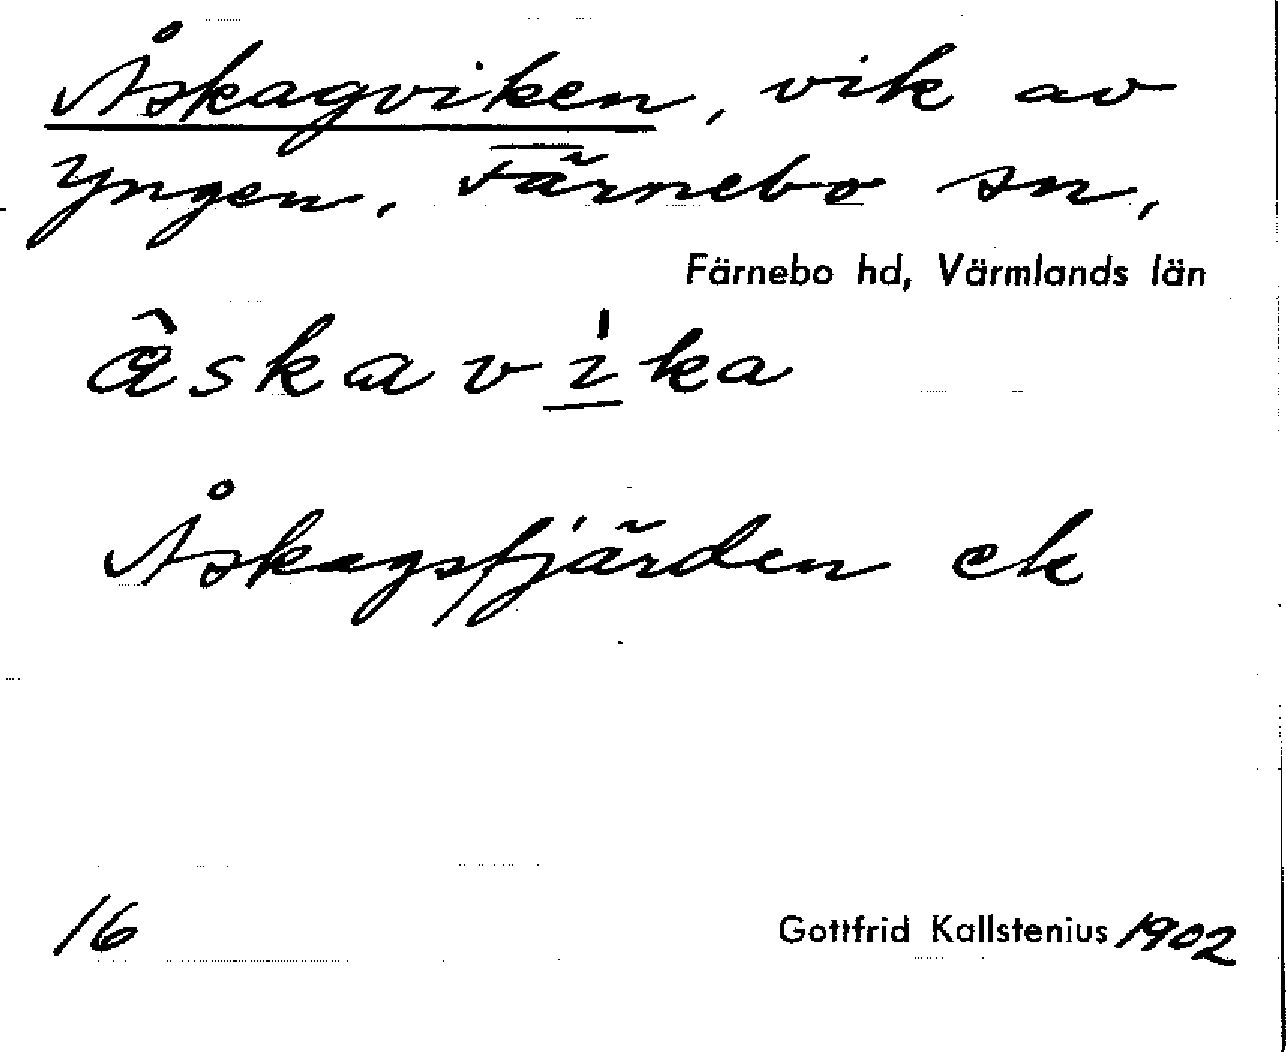 Åskagviken, vik av
Yngen, Färnebo sn,
Färnebo hd, Värmlands län
åskavika
Åskagsfjärden ek
16
Gottfrid Kallstenius 1902